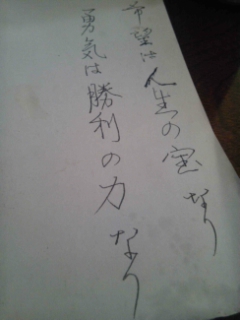 希望は人生の宝なり
勇気は勝利の力なり